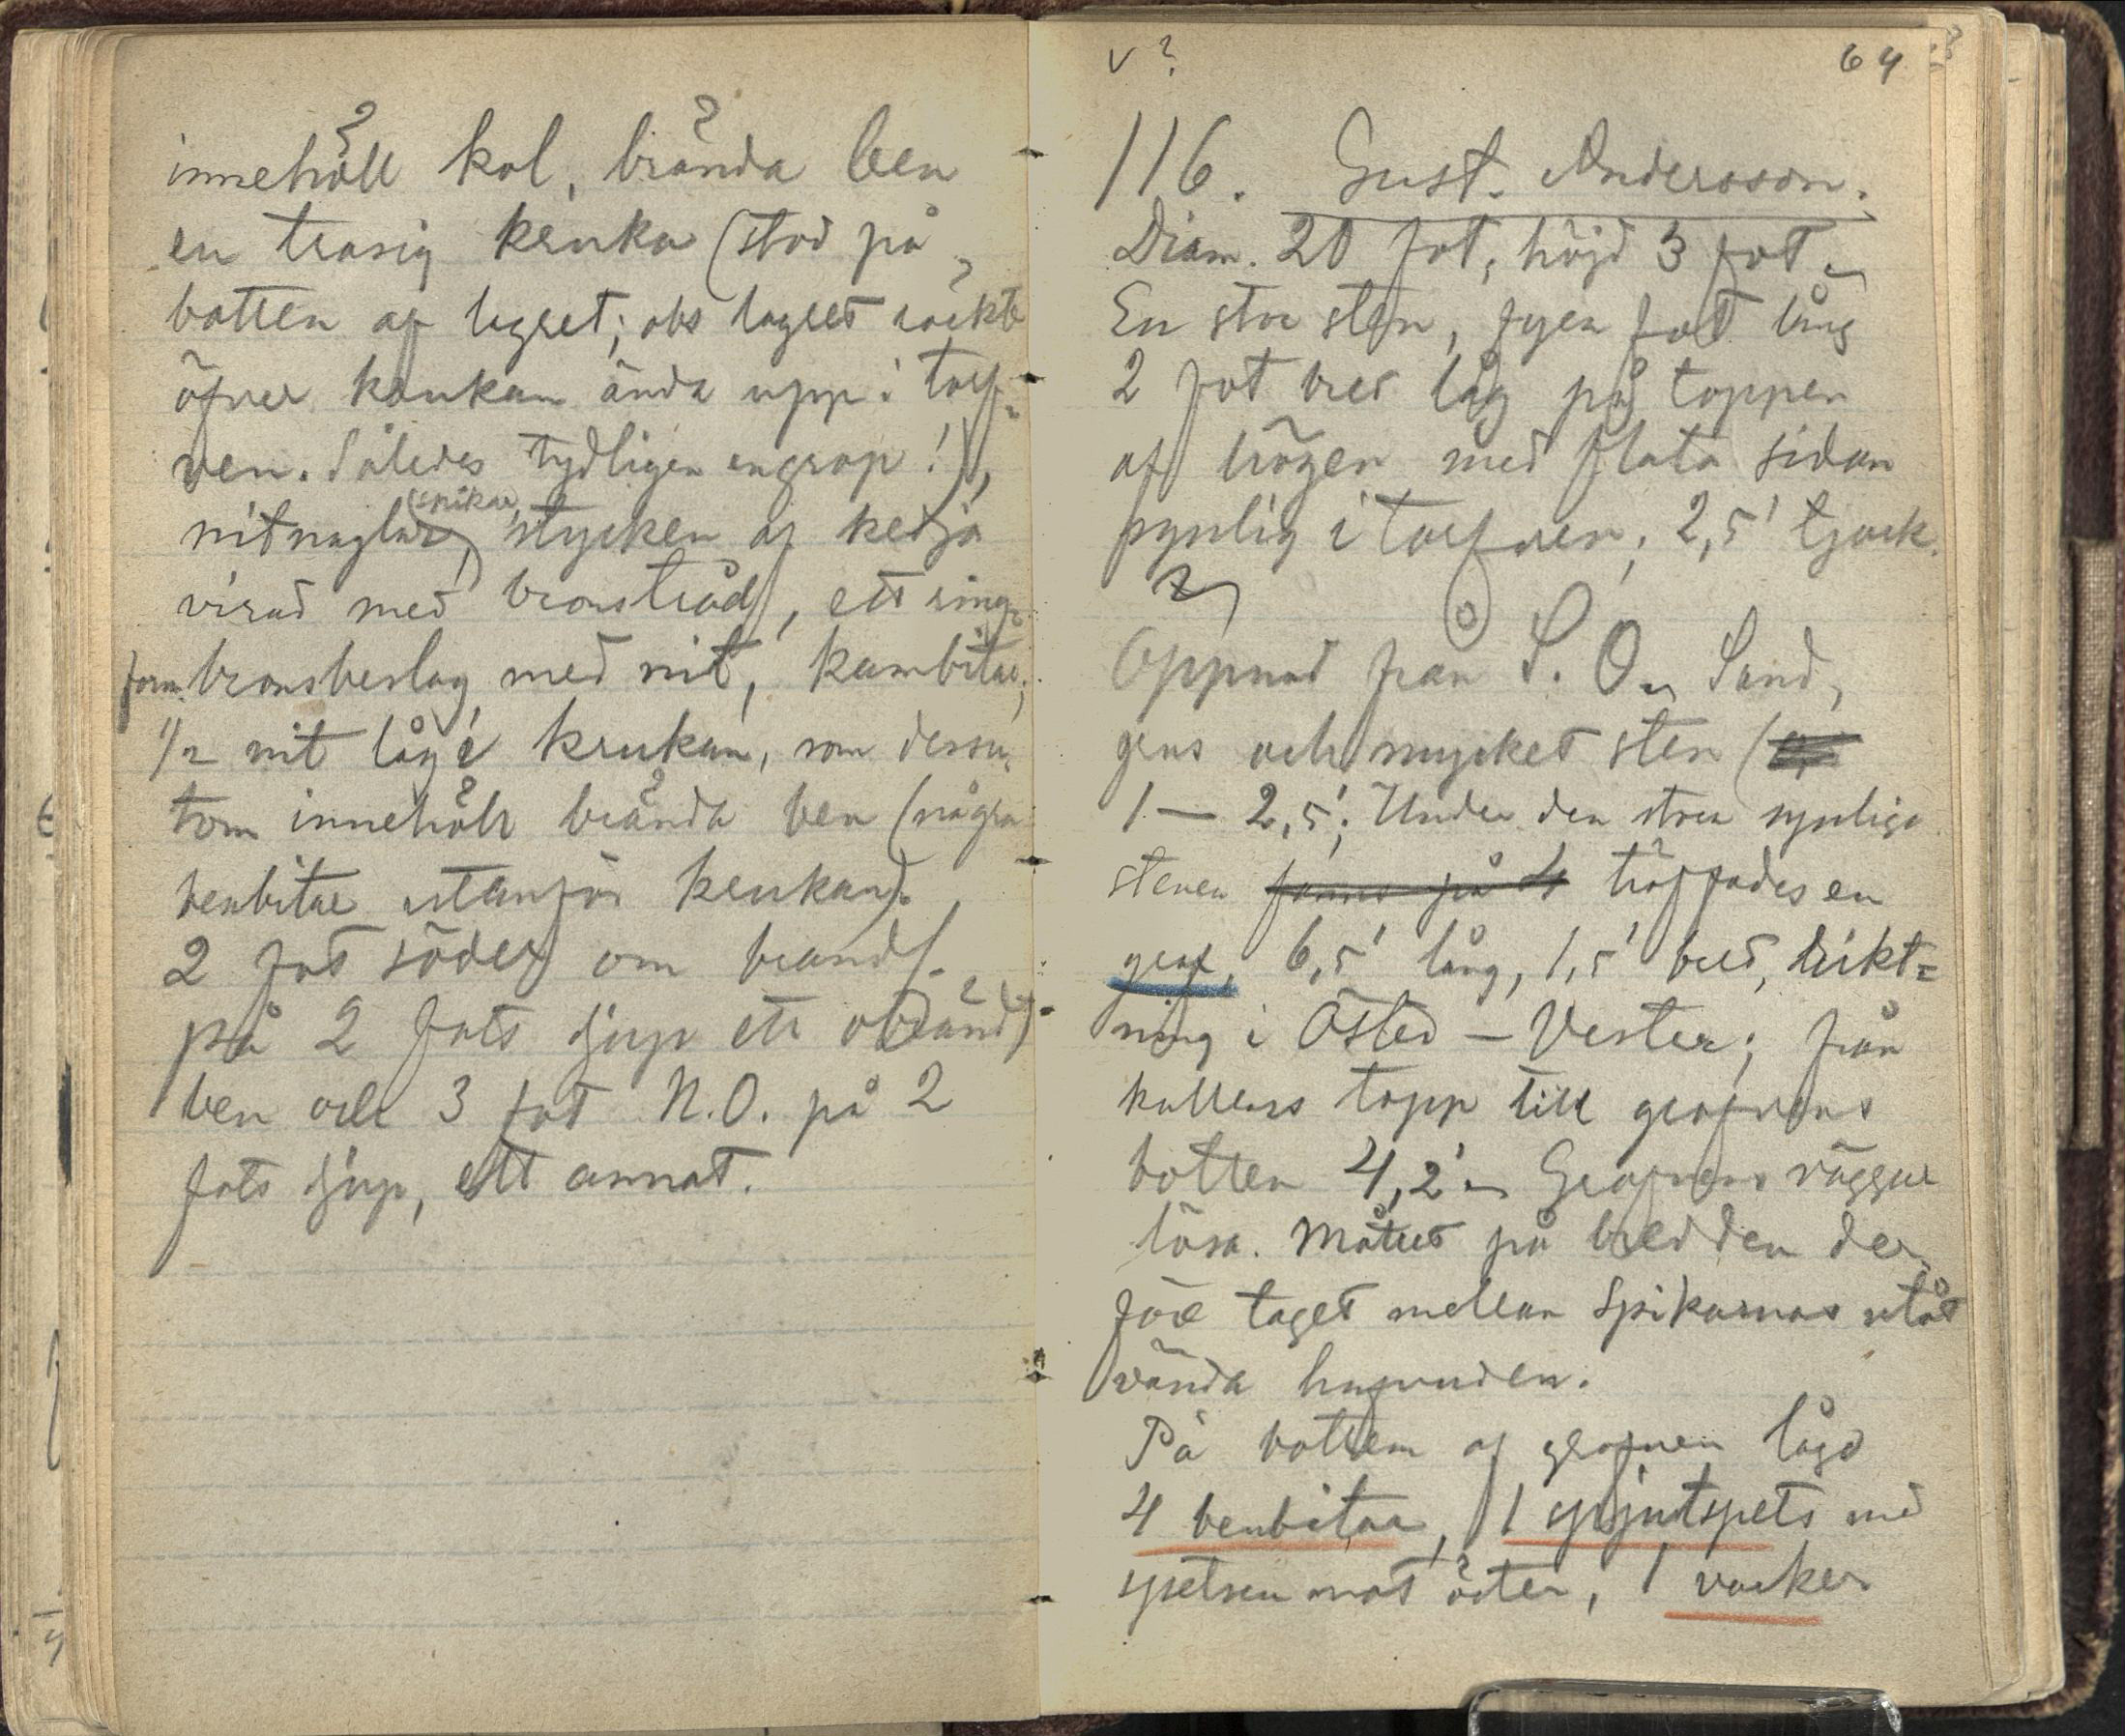 innehöll kol, brända ben
en trasig kruka (stod på
botten af lagret; obs lagret räckte
öfver krukan ända upp i torf-
ven. Således tydligen engrop!),
nitnaglar, (spikar, stycken af kedja
virad med bronstråd, ett ring-
form. bronsbeslag med nit, kambitar;
1/2 nit låg i krukan, som dessu-
tom innehöll brända ben (några
benbitar utanför krukan).
2 fot söder om brandl.
på 2 fots djup ett obrändt
ben och 3 fot N.O. på 2
fots djup, ett annat.
v? 64
116. Gust. Andersson.
Diam. 20 fot, höjd 3 fot
En stor sten, fyra fot lång
2 fot bred låg på toppen
af högen med flata sidan
synlig i torfven; 2,5' tjock.
Öppnad från S. O. Sand,
grus och mycket sten (
1 — 2,5'; Under den stora synliga
stenen fanns på 4 träffades en
graf, 6,5' lång, 1,5' bred, rikt-
ning i Öster — Vester; från
kullens topp till grafvens
botten 4,2' Grafvens väggar
lösa. Måttet på bredden der-
före taget mellan spikarnas utåt
vända hufvuden.
På botten af grafven lågo
4 benbitar, 1 spjutspets med
spetsen mot öster, 1 vacker